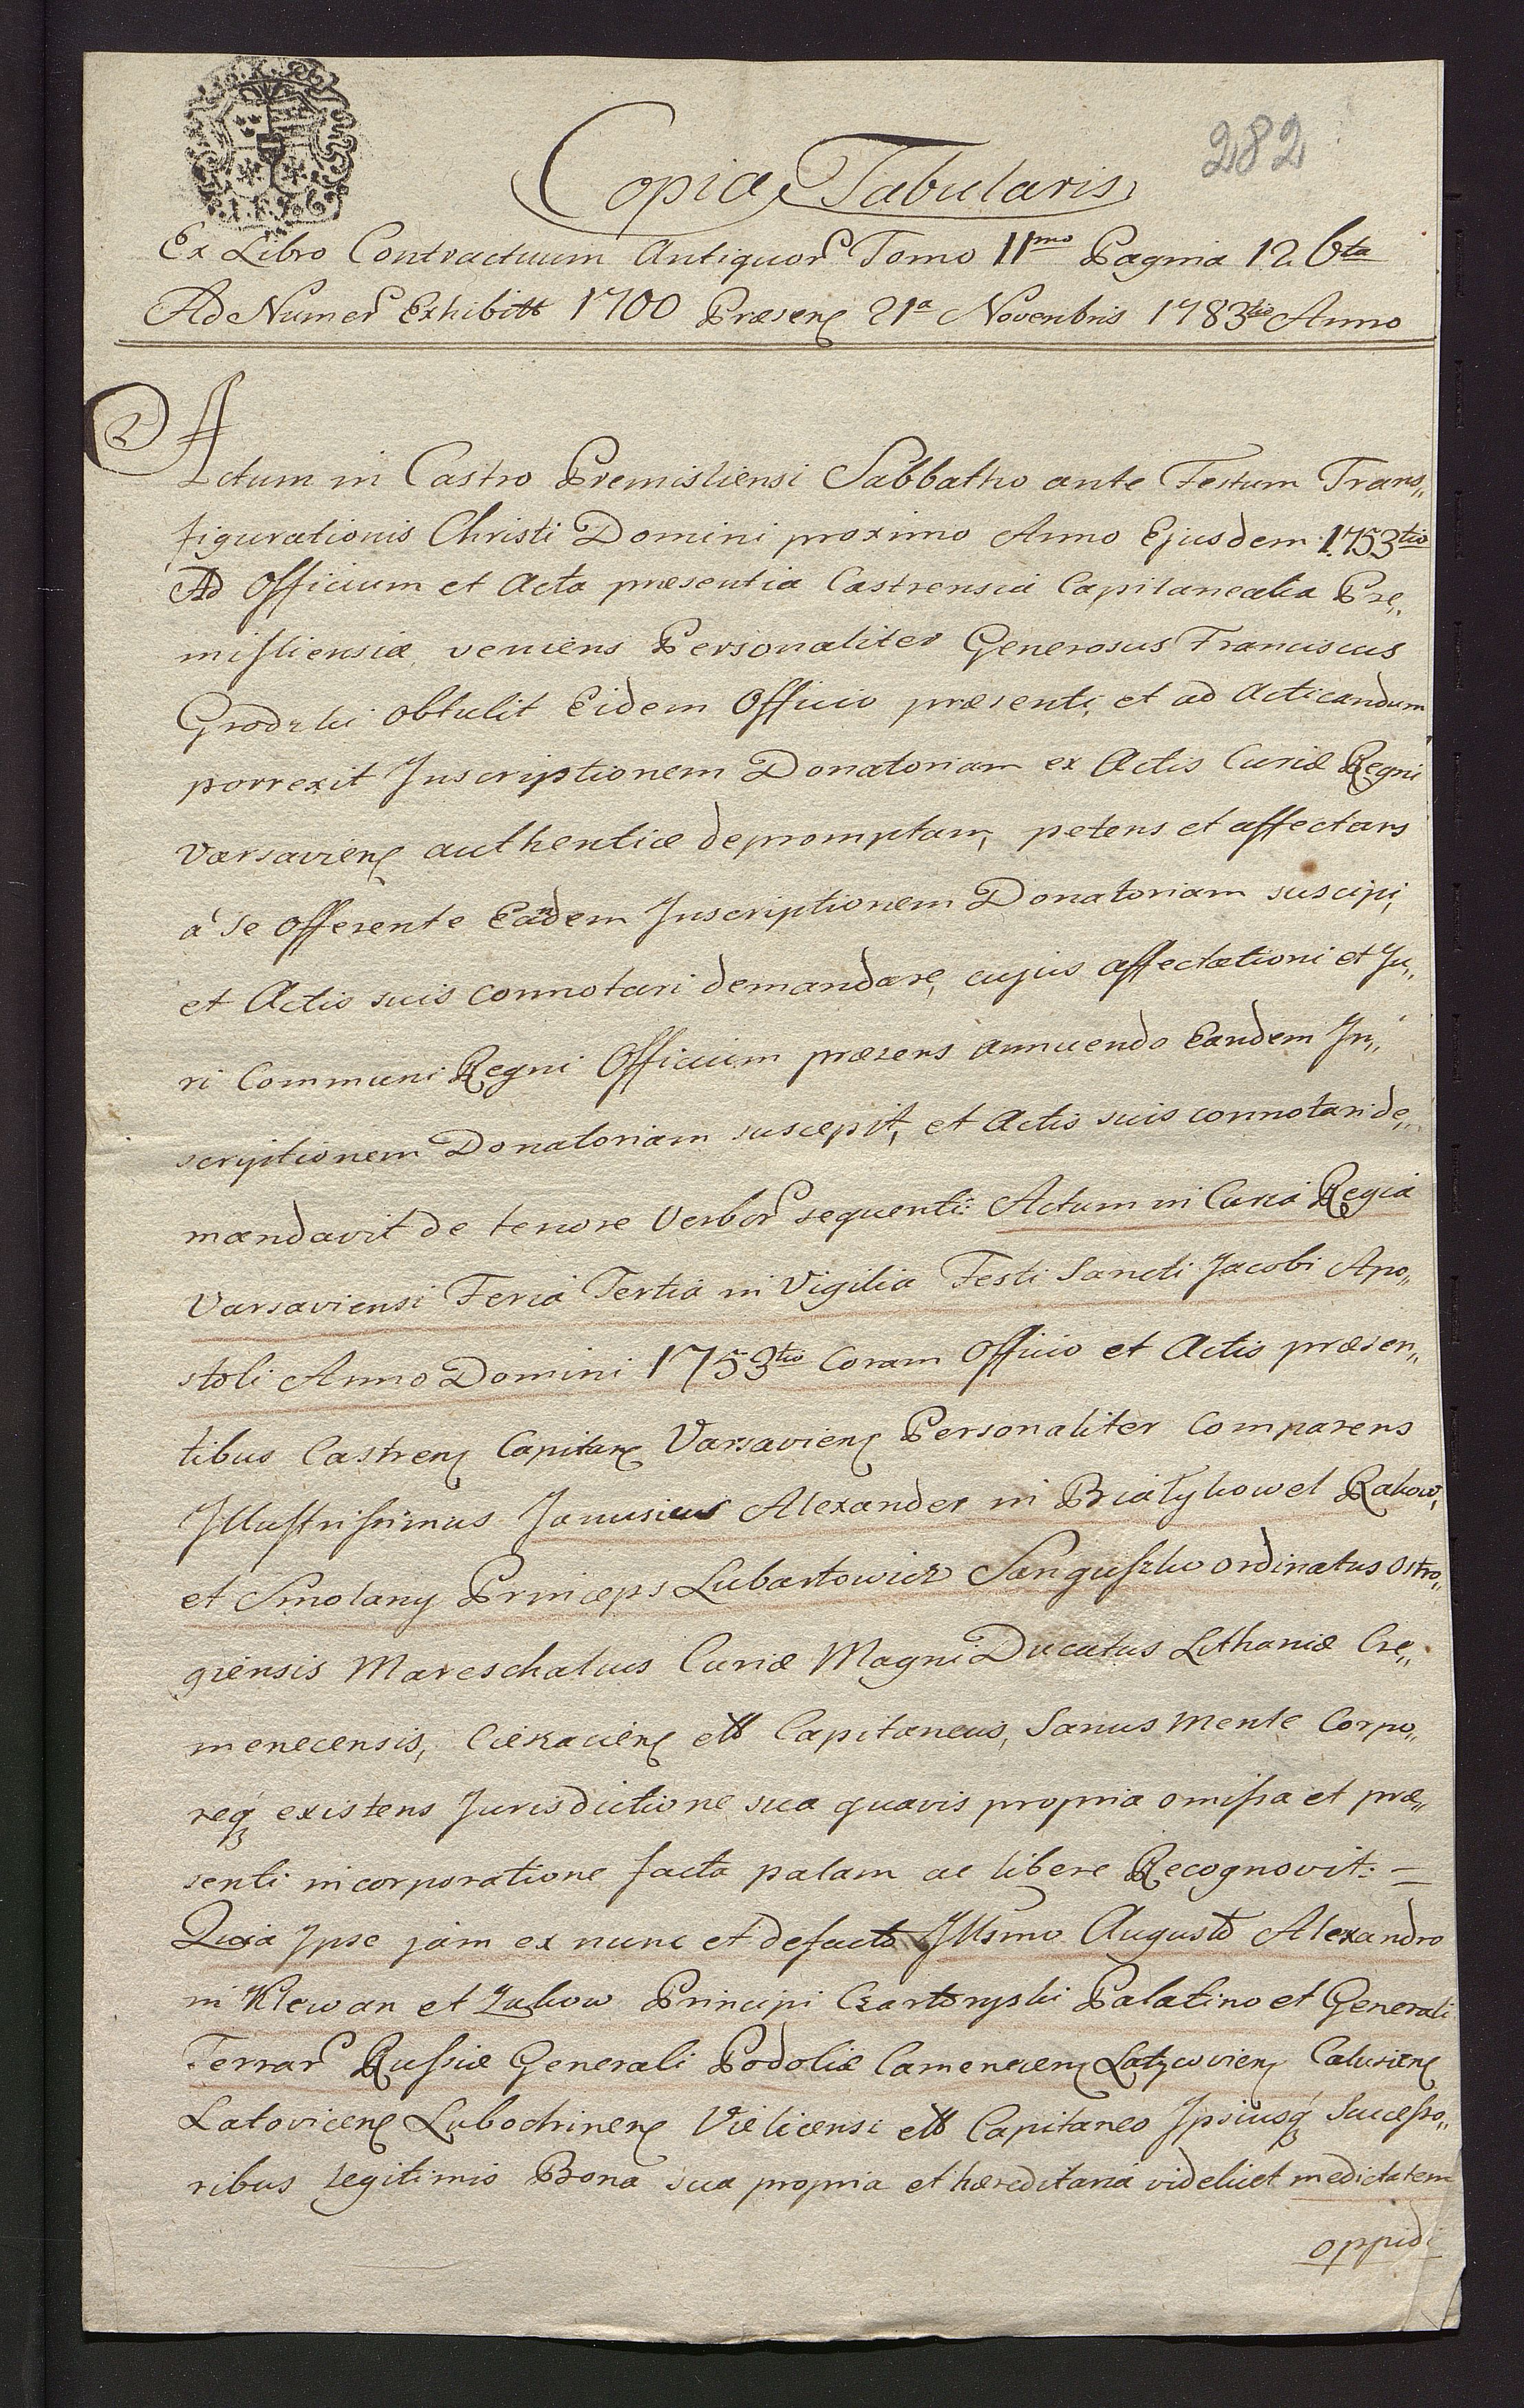 282
Copia Tabularis
Ex Libro Contractuum Antiquor Tomo II mo Pagina 126ta
Ad Numer Exhibiti 1700 Præsen 21a Novembris 1783tio Anno
Actum in Castro Premisliensi Sabbatho ante Festum Trans„
figurationis Christi Domini proximo Anno Ejusdem 1753tio
Ad Officium et Acta præsentia Castrensia Capitanealia Pre„
misliensia veniens Personaliter Generosus Franciscus
Grodzki obtulit Eidem Officio præsenti, et ad Acticandum
porrexit Inscriptionem Donatoriam ex Actis Curiæ Regni
Varsavien authentice depromptam, petens et affectans
a se offerente Eandem Inscriptionem Donatoriam suscipi,
et Actis suis connotari demandare, cujus affectationi et Ju„
ri Communi Regni Officium præsens annuendo Eandem In„
scriptionem Donatoriam suscepit, et Actis suis connotari de„
mandavit de tenore Verbor sequenti: Actum in Curia Regia
Varsaviensi Feria Tertia in Vigilia Festi Sancti Jacobi Apo„
stoli Anno Domini 1753tio Coram Officio et Actis præsen„
tibus Castren Capitan Varsavien Personaliter Comparens
Illustrissimus Janusius Alexander in Białykowel Rakow,
et Smolany Princeps Lubartowicz Sanguszko Ordinatus Ostro„
giensis Mareschalus Curiæ Magni Ducatus Lithaniæ Cre„
menecensis, Ciekacien ett Capitaneus, Sanus Mente Corpo„
req existens Jurisdictione sua quavis propria omissa et præ„
senti incorporatione facta palam ac libere Recognovit: =
Quia Ipse jam ex nunc et defacto Illsmo Augusto Alexandro
in Klewan et Zukow Principi Czartoryski Palatino et Generali
Terrar Russiæ Generali Podoliæ Camenecen Latycovien Calusien
Latovicen Lubochinen Vielicensi ett Capitaneo Ipsiusq Successo„
ribus legitimis Bona sua propria et hæreditaria videlicet medietatem
oppidi